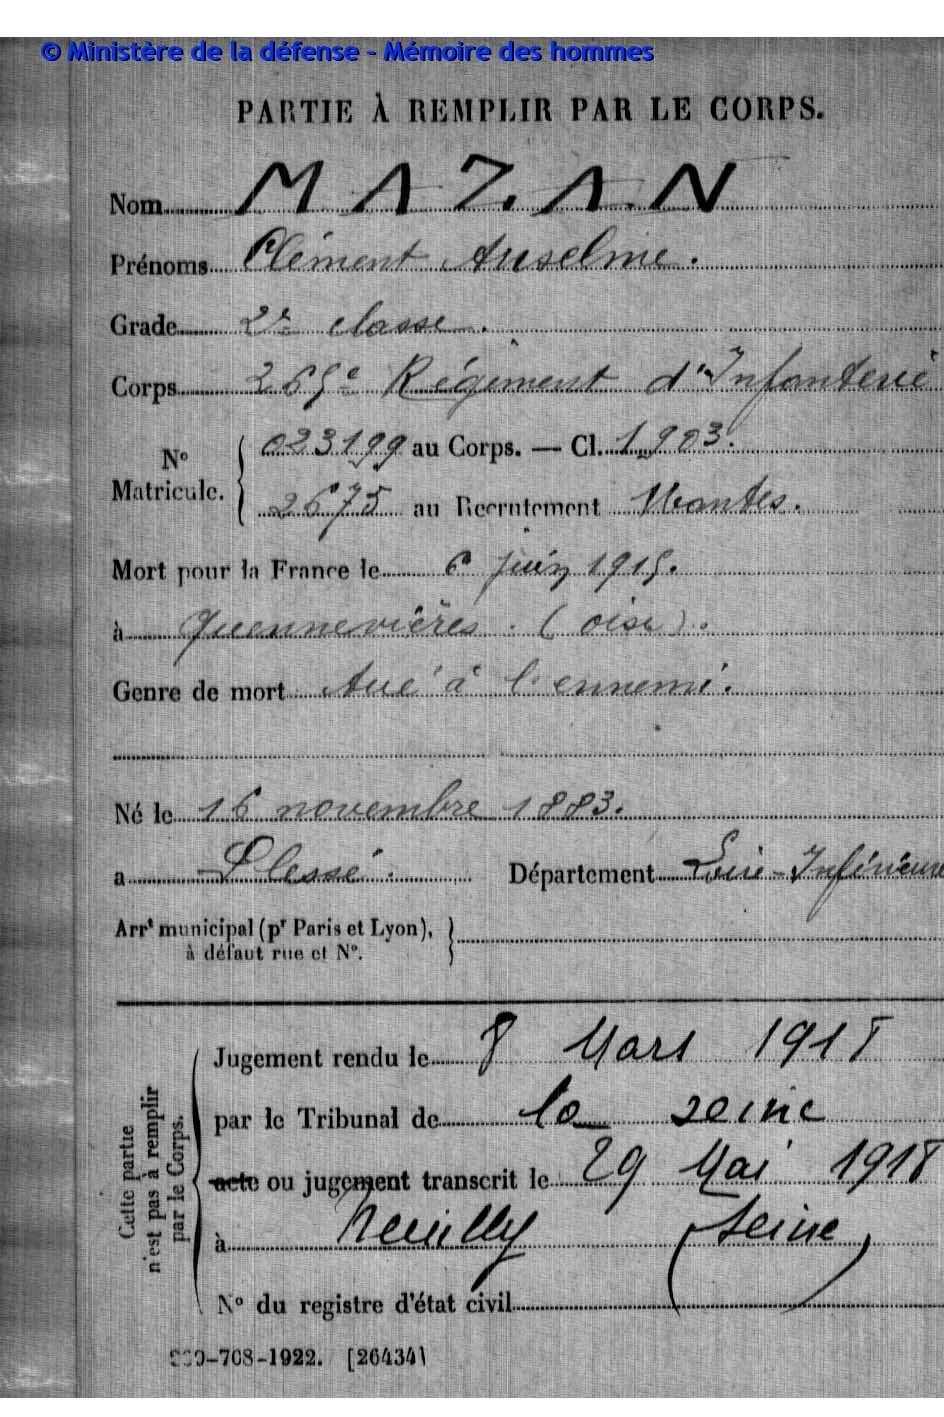 © Ministère de la défense - Mémoire des hommes
PARTIE À REMPLIR PAR LE CORPS.
Nom MAZAN
Prénoms Clément Anselme.
Grade 2e classe.
Corps 265e Régiment d'Infanterie
N° Matricule. 023199 au Corps. — Cl. 1903.
2675 au Recrutement Nantes.
Mort pour la France le 6 juin 1915.
à Quennevières. (oise).
Genre de mort tué à l'ennemi.
Né le 16 novembre 1883.
a Plessé. Département Loire-Inférieure
Arrt municipal (pr Paris et Lyon),
à défaut rue et N°.
Cette partie n'est pas à remplir par le Corps.
Jugement rendu le 8 Mars 1918
par le Tribunal de la seine
acte ou jugement transcrit le 29 Mai 1918
à Neuilly (seine)
N° du registre d'état civil
-708-1922. [26434]